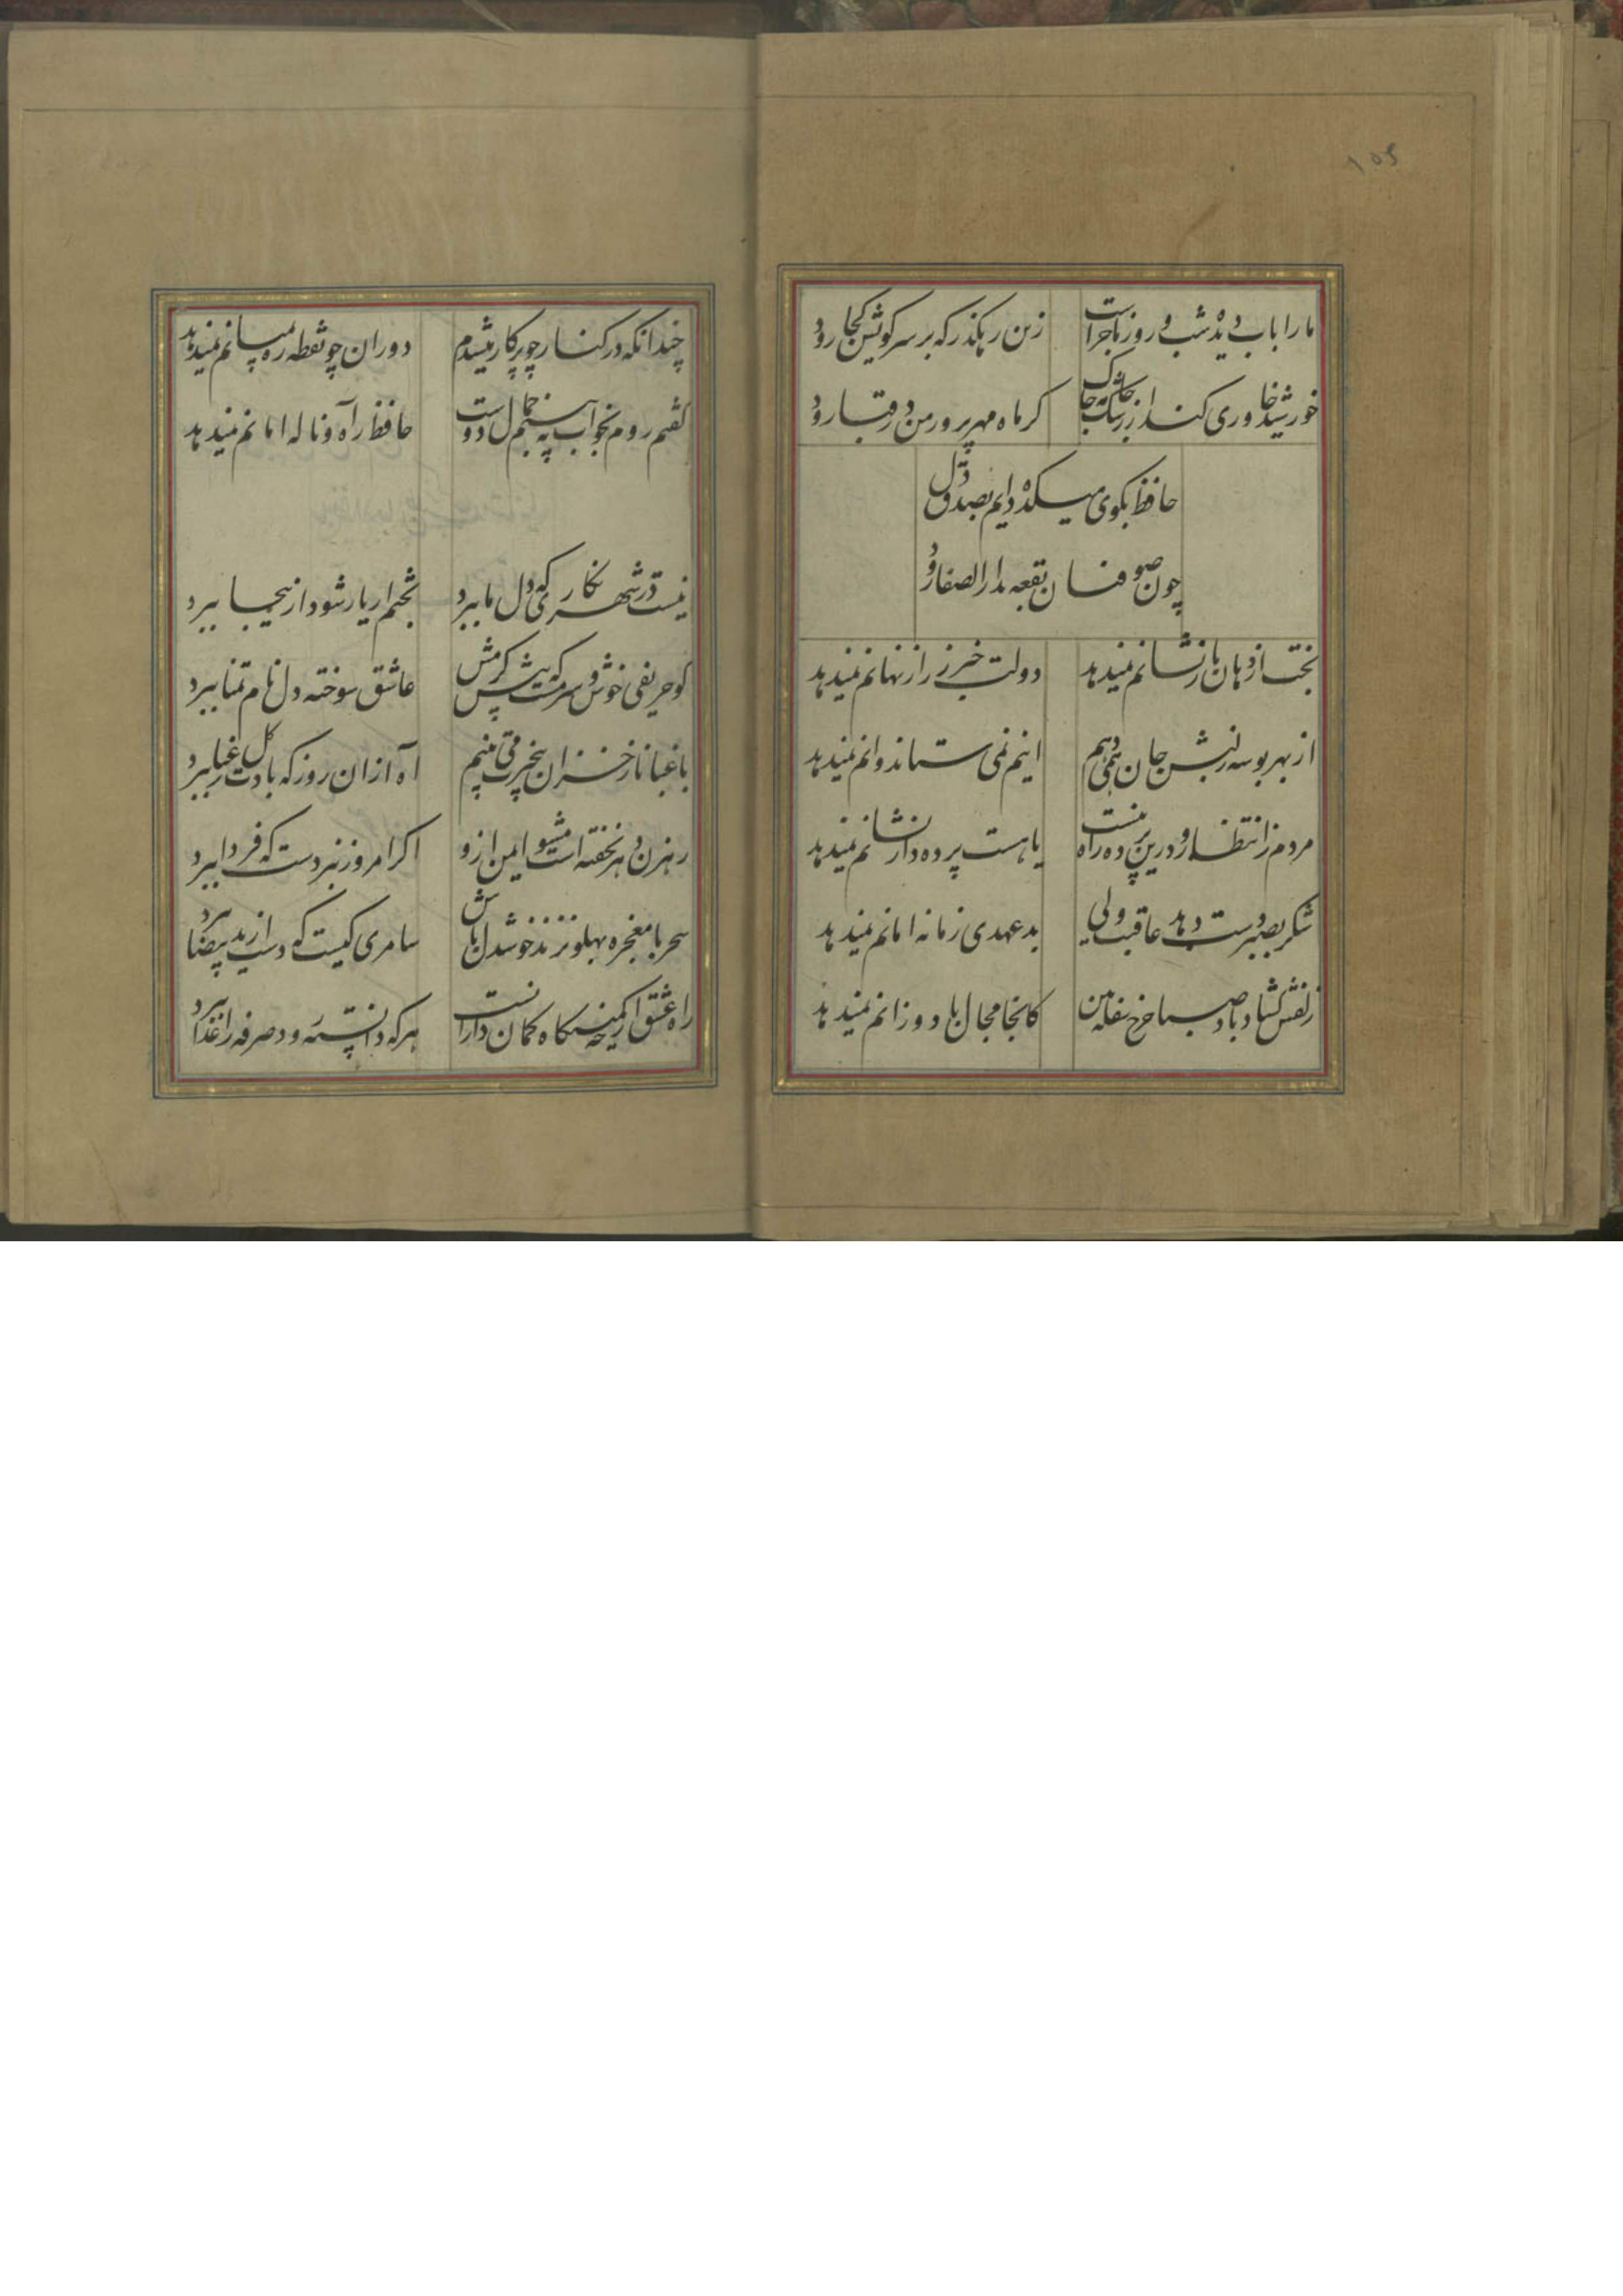 ۱۰۵
ما را باب دیده شب و روز ماجراست
زین رهگذر که بر سر کویش کجا رود
خورشید خاوری کند از رشک جامه چاک
کر ماه مهرپرور من در قبا رود
حافظ بکوی میکده دایم بصدق دل
چون صوفیان بقعه بدار الصفا رود
بخت از دهان یار نشانم نمیدهد
دولت خبر ز راز نهانم نمیدهد
از بهر بوسه ز لبش جان همی دهم
اینم نمی ستاند و انم نمیدهد
مردم ز انتظار و درین پرده راه نیست
یا هست پرده دار نشانم نمیدهد
شکر بصبر دست دهد عاقبت ولی
بد عهدی زمانه امانم نمیدهد
زلفش کشاد باد صبا چرخ سفله بین
کانجا مجال باد وزانم نمیدهد
چندانکه در کنار چو پرکار میشدم
دوران چو نقطه ره بمیانم نمیدهد
کفتم روم بخواب به بینم جمال دوست
حافظ ز آه و ناله امانم نمیدهد
نیست در شهر نکاری که دل ما ببرد
بختم ار یار شود از ینجا ببرد
کو حریفی خوش و سرمست که پیش کرمش
عاشق سوخته دل نام تمنا ببرد
باغبانا ز خزان بیخبرت می بینم
آه از ان روز که بادت کل رعنا ببرد
رهزن دهر نخفته است مشو ایمن ازو
اکر امروز نبردست که فردا ببرد
سحر با معجزه پهلو نزند خوشدل باش
سامری کیست که دست از ید بیضا ببرد
راه عشق ار چه کمینکاه کمان دارانست
هر که دانسته رود صرفه ز اعدا ببرد